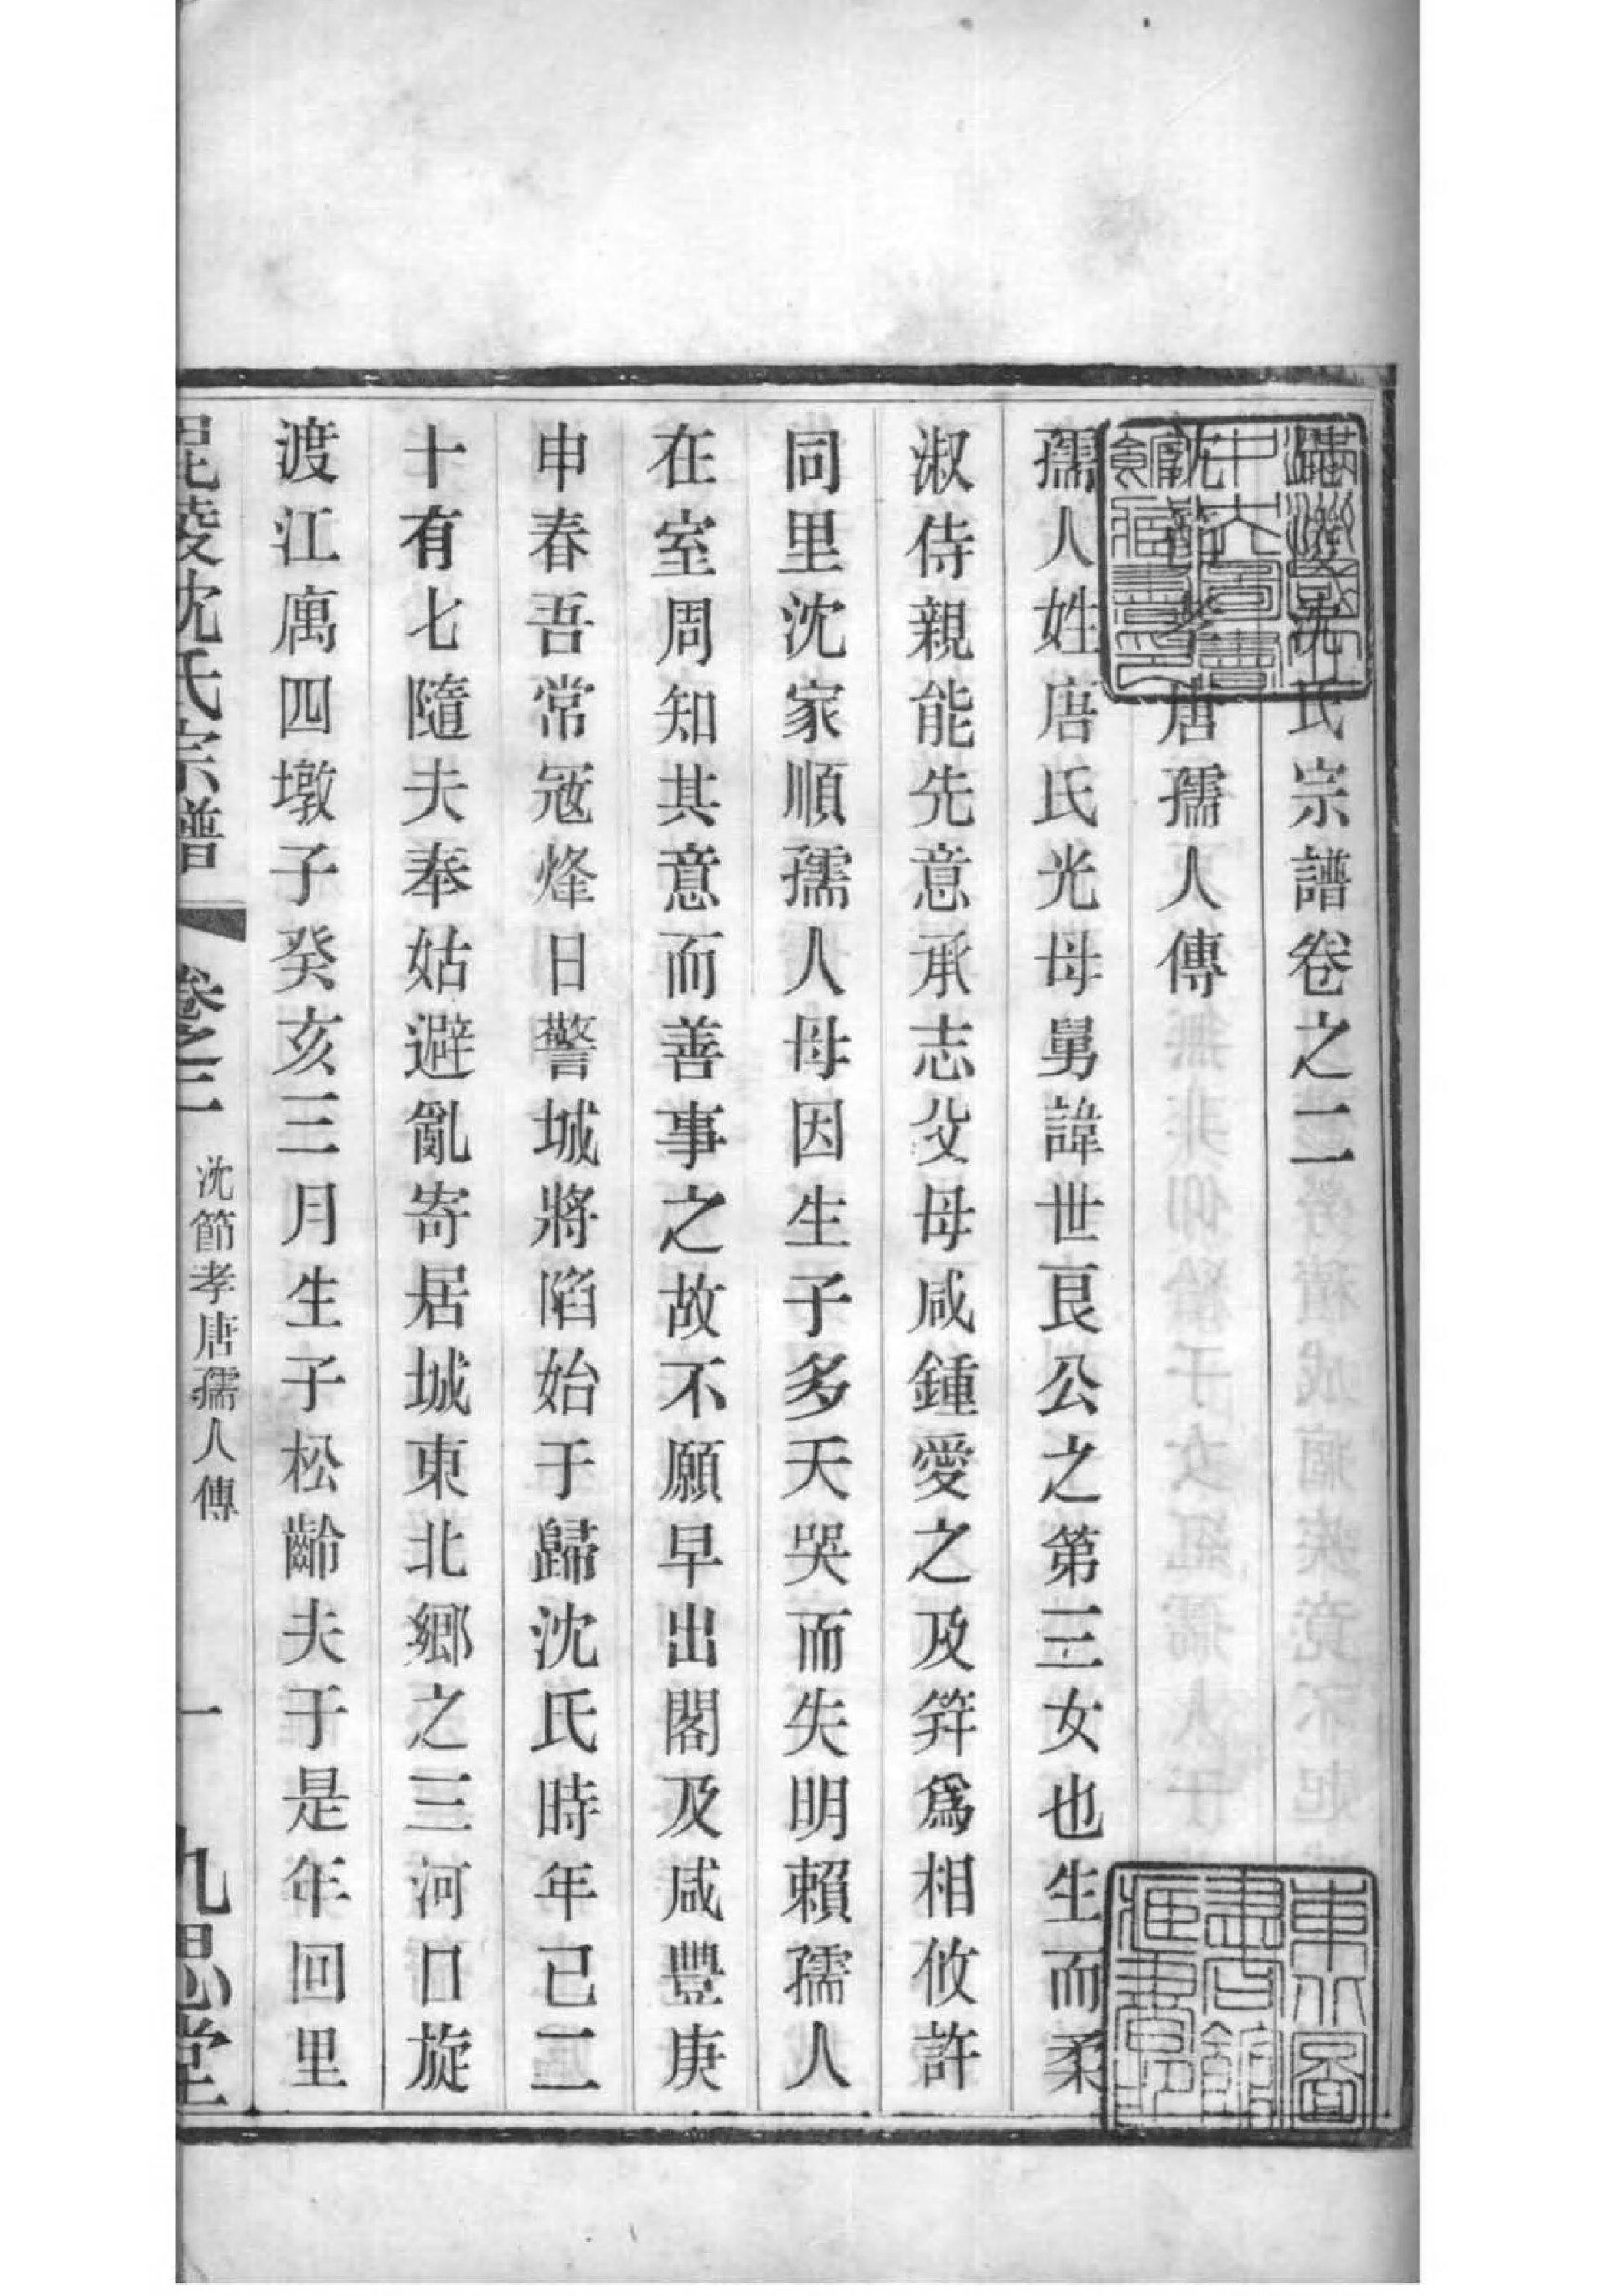 沈氏宗譜卷之二
沈節孝唐孺人傳
孺人姓唐氏光母舅諱世良公之第三女也生而柔
淑侍親能先意承志父母咸鍾愛之及笄爲相攸許
同里沈家順孺人母因生子多夭哭而失明賴孺人
在室周知其意而善事之故不願早出閣及咸豐庚
申春吾常冦烽日警城將陷始于歸沈氏時年已二
十有七隨夫奉姑避亂寄居城東北鄉之三河口旋
渡江寓四墩子癸亥三月生子松齡夫于是年回里
毘陵沈氏宗譜 卷之二 沈節孝唐孺人傳 一 九思堂